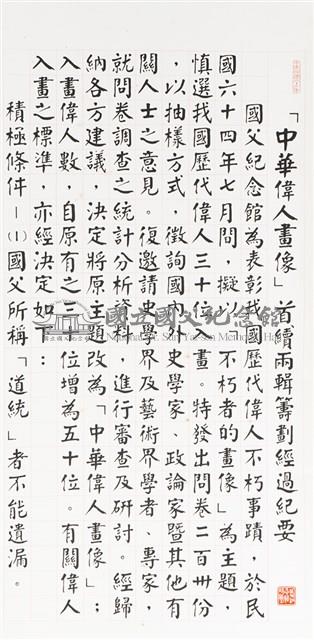 「中華偉人畫像」首續兩輯籌劃經過紀要
國父紀念館為表彰我國歷代偉人不朽事蹟，於民
國六十四年七月間，擬以「不朽者的畫像」為主題，
慎選我國歷代偉人三十位入畫。特發出問卷二百卅份
，以抽樣方式，徵詢國內外史學家、政論家暨其他有
關人士之意見。復邀請史學界及藝術界學者、專家，
就問卷調查之統計分析資料，進行審查及研討。經歸
納各方建議，決定將原主題改為「中華偉人畫像」；
入畫偉人數，自原有之三十位增為五十位。有關偉人
入畫之標準，亦經決定如下：
積極條件－⑴國父所稱「道統」者不能遺漏。
國立國父紀念館